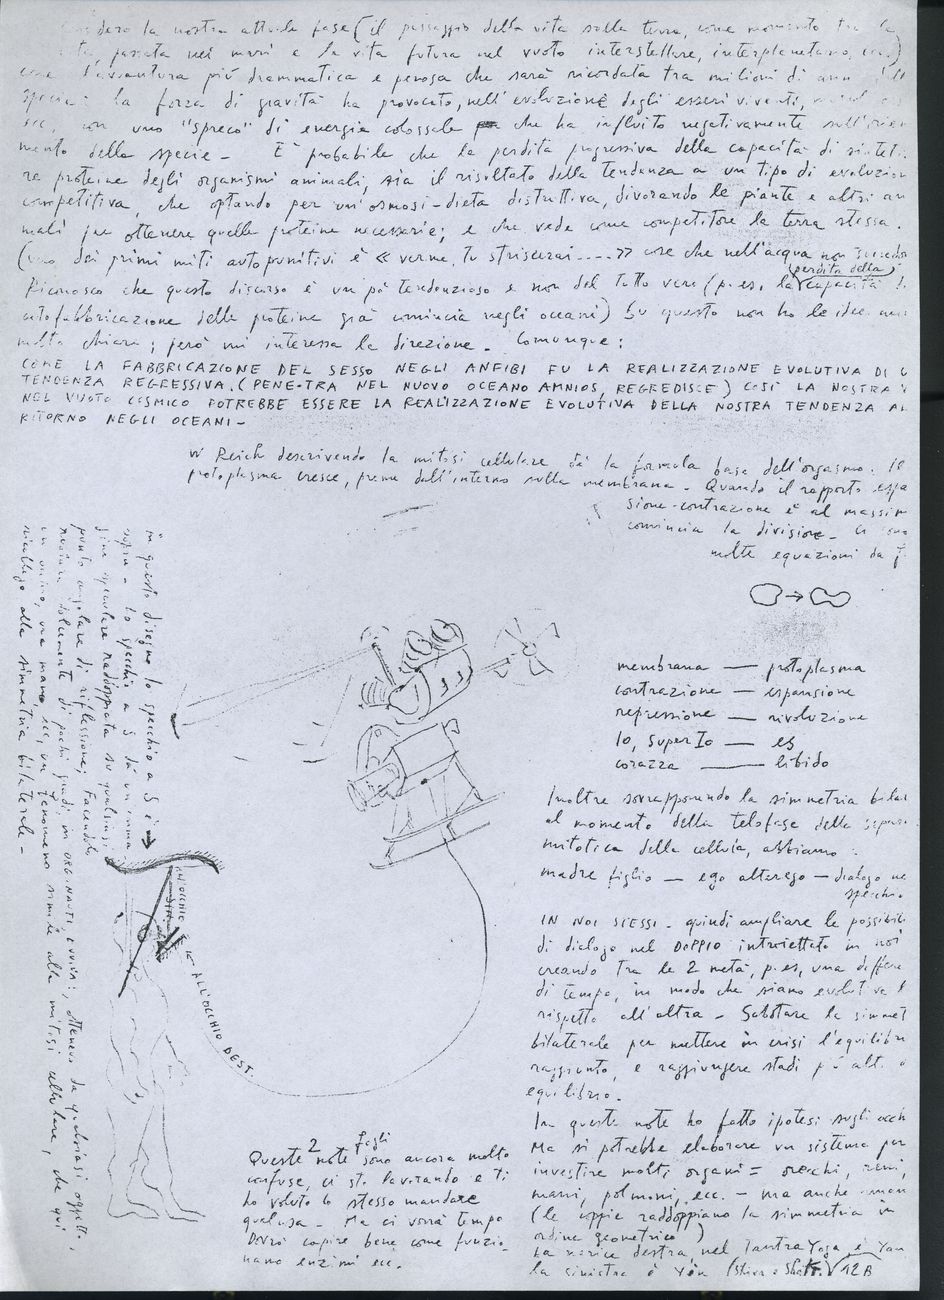 dero la nostra attuale fase (il passaggio della vita sulla terra, come momento tra la
passata nei mari e la vita futura nel vuoto interstellare, interplanetario,
come l'avventura più drammatica e penosa che sarà ricordata tra milioni di anni
specie: la forza di gravità ha provocato, nell'evoluzione degli esseri viventi,
ecc, con uno "spreco" di energia colossale che ha influito negativamente sull'orien
mento della specie - È probabile che la perdita progressiva della capacità di sinteti
re proteine degli organismi animali, sia il risultato della tendenza a un tipo di evoluzion
competitiva, che optando per un'osmosi-dieta distruttiva, divorando le piante e altri an
mali per ottenere quelle proteine necessarie; e che vede come competitore la terra stessa.
(uno dei primi miti autopunitivi è « verme, tu striscerai.... » cose che nell'acqua non succedo
Riconosco che questo discorso è un pò tendenzioso e non del tutto vero (p.es. la (perdita della) capacità di
autofabbricazione delle proteine già comincia negli oceani) Su questo non ho le idee
molto chiare; però mi interessa la direzione. Comunque:
COME LA FABBRICAZIONE DEL SESSO NEGLI ANFIBI FU LA REALIZZAZIONE EVOLUTIVA DI U
TENDENZA REGRESSIVA. (PENE-TRA NEL NUOVO OCEANO AMNIOS, REGREDISCE) COSÌ LA NOSTRA
NEL VUOTO COSMICO POTREBBE ESSERE LA REALIZZAZIONE EVOLUTIVA DELLA NOSTRA TENDENZA AL
RITORNO NEGLI OCEANI -
W Reich descrivendo la mitosi cellulare dà la formula base dell'orgasmo. Il
protoplasma cresce, preme dall'interno sulla membrana - Quando il rapporto espa
sione-contrazione è al massim
comincia la divisione.
molte equazioni da f
membrana — protoplasma
contrazione — espansione
repressione — rivoluzione
Io, Super Io — es
corazza — libido
Inoltre sovrapponendo la simmetria bilat
al momento della telofase della separa
mitotica della cellula, abbiamo:
madre figlio — ego alterego — dialogo ne
specchi.
IN NOI STESSI - quindi ampliare le possibili
di dialogo nel DOPPIO introiettato in noi
creando tra le 2 metà, p.es, una differe
di tempo, in modo che siano evolutiva
rispetto all'altra - Sabotare la simmet
bilaterale per mettere in crisi l'equilibri
raggiunto, e raggiungere stadi più alti
equilibrio.
In queste note ho fatto ipotesi sugli occh
Ma si potrebbe elaborare un sistema per
investire molti organi = orecchi, reni,
mani, polmoni, ecc. - ma anche
(le coppie raddoppiano la simmetria in
ordine geometrico)
La narice destra, nel Tantra Yoga, è Yan
la sinistra è Yin (Shiva e Shakti) 12B
in questo disegno lo specchio a S è
sopra - Lo specchio a S dà un imma
gine speculare raddoppiata su qualsiasi
punto angolare di riflessione; Facendolo
ruotare solamente di pochi gradi, mi ORGINAUTI EVVIVA!, ottenevo da qualsiasi oggetto,
un viso, una mano, ecc, un fenomeno simile alla mitosi cellulare, che qui
ricollego alla simmetria bilaterale -
ALL'OCCHIO SIN.
ALL'OCCHIO DEST.
Queste 2 note fogli sono ancora molto
confuse, ci sto lavorando e ti
ho voluto lo stesso mandare
qualcosa - Ma ci vorrà tempo
Dovrò capire bene come funzio-
nano enzimi ecc.